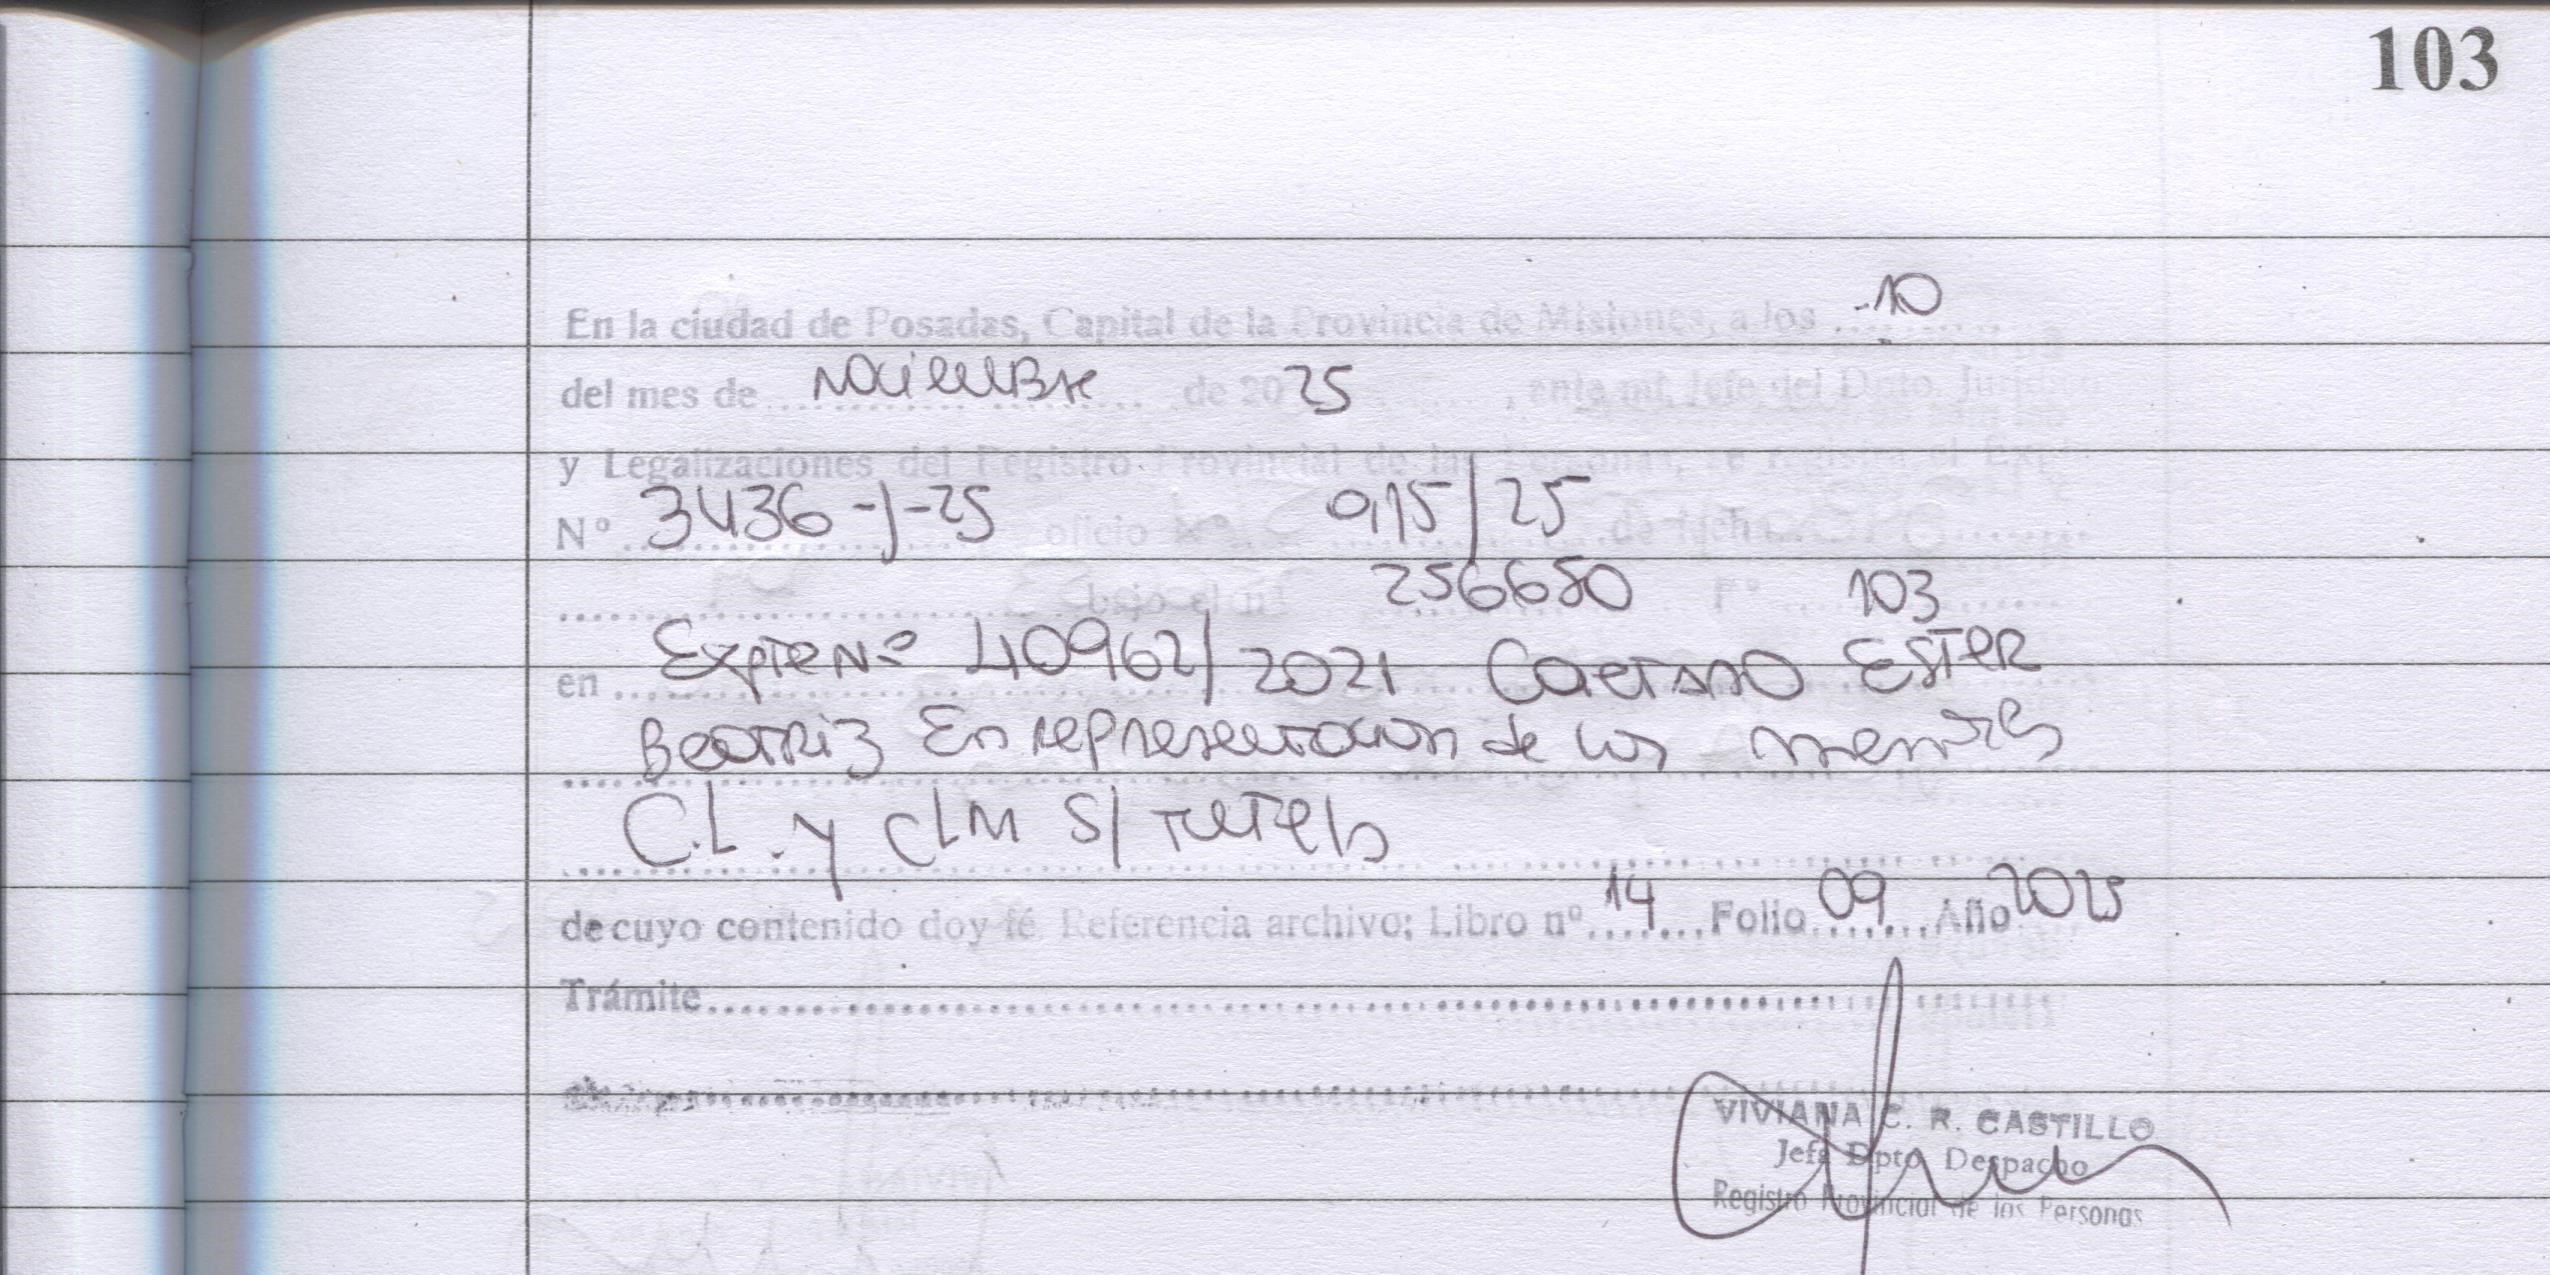 103
En la ciudad de Posadas, Capital de la Provincia de Misiones, a los 10
del mes de Noviembre de 2025, ante mí, Jefe del Dpto. Jurídico
y Legalizaciones del Registro Provincial de las Personas, se registra el Expte
Nº 3436-J-25 oficio Nº 915/25 de fecha
bajo el nº 256680 Fº 103
en Expte Nº 40962/2021 Caetano Ester
Beatriz En representacion de los menores
C.L. y CLM S/ Tutela
de cuyo contenido doy fé. Referencia archivo; Libro nº 14 Folio 09 Año 2025
Trámite
VIVIANA C. R. CASTILLO
Jefa Dpto. Despacho
Registro Provincial de las Personas